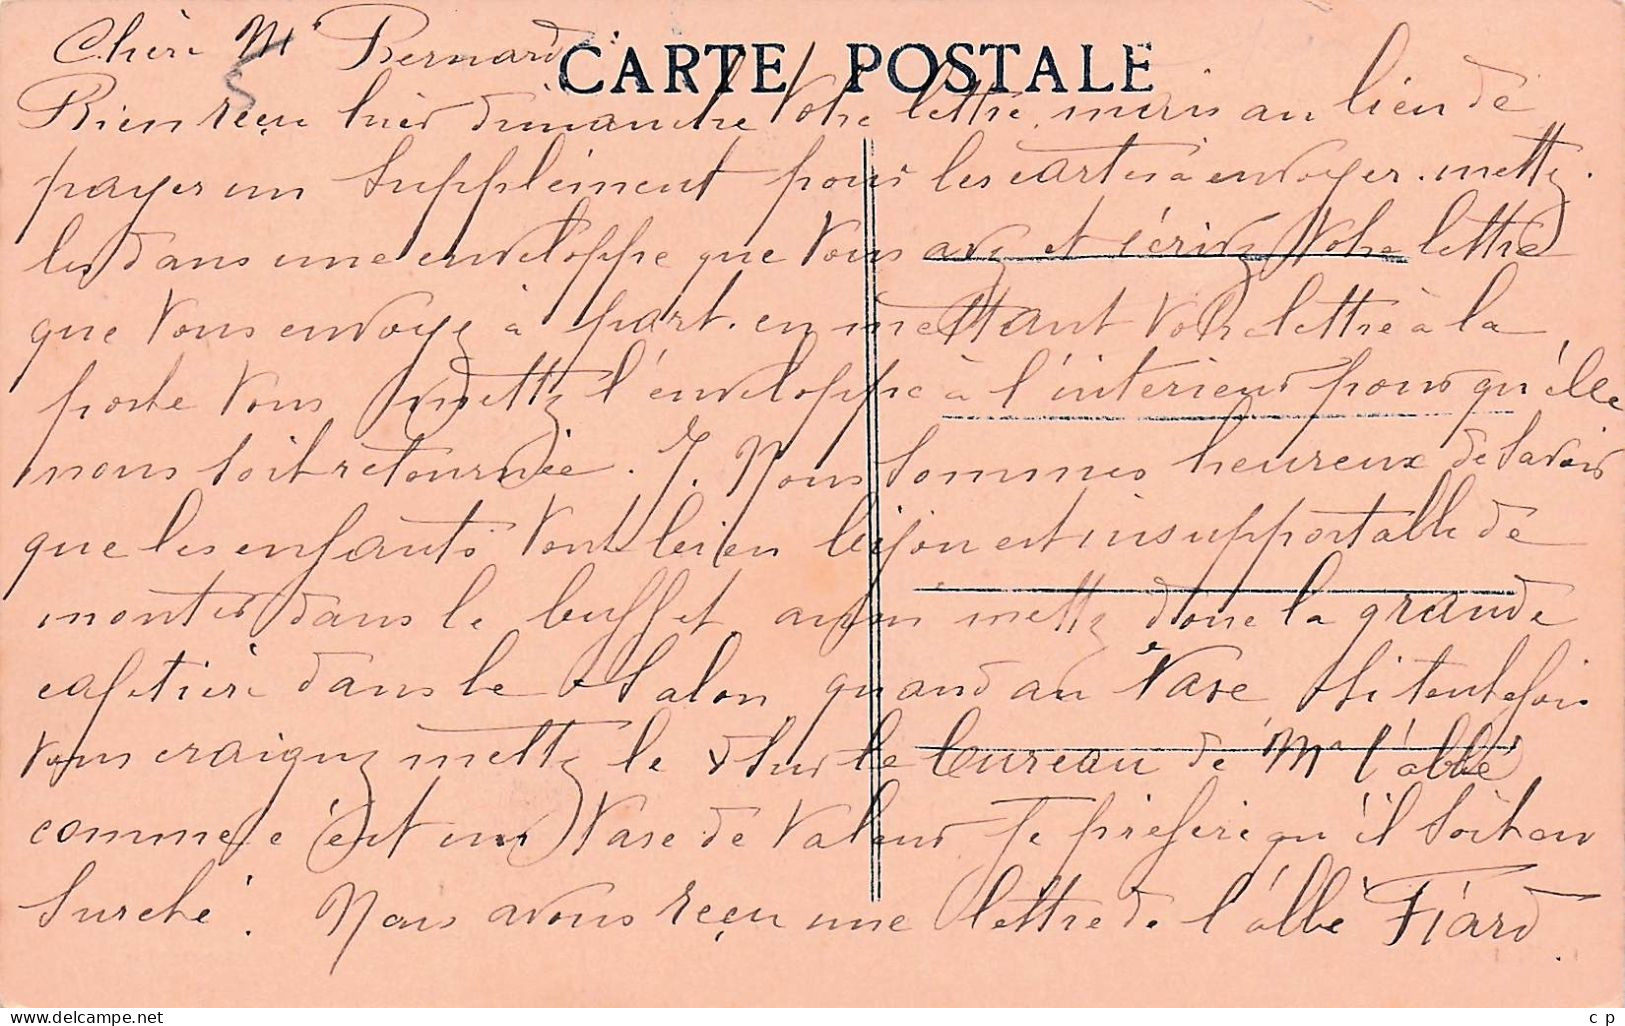 Chère Mr Bernard
CARTE POSTALE
Bien reçu hier dimanche Votre lettre. mais au lieu de
payer un supplément pour les cartes à envoyer. mettez.
les dans une enveloppe que vous avez et écrivez Votre lettre
que vous envoyez à part. en mettant Votre lettre à la
poste vous mettez l'enveloppe à l'intérieur pour qu'elle
nous soit retournée. J. Nous sommes heureux de savoir
que les enfants vont bien bijou est insupportable de
monter dans le buffet, mettez donc la grande
cafetière dans le salon, quand au Vase si toutefois
vous craignez mettez le sur le bureau de Mr l'abbé
comme c'est un Vase de Valeur je préfère qu'il soit en
sureté. Nous avons reçu une lettre de l'abbé Fiard.
c p
www.delcampe.net